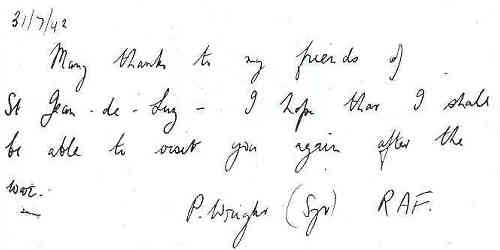 31/7/42
Many thanks to my friends of
St Jean-de-Luz - I hope that I shall
be able to visit you again after the
war.
P. Wright (Sgt) RAF.